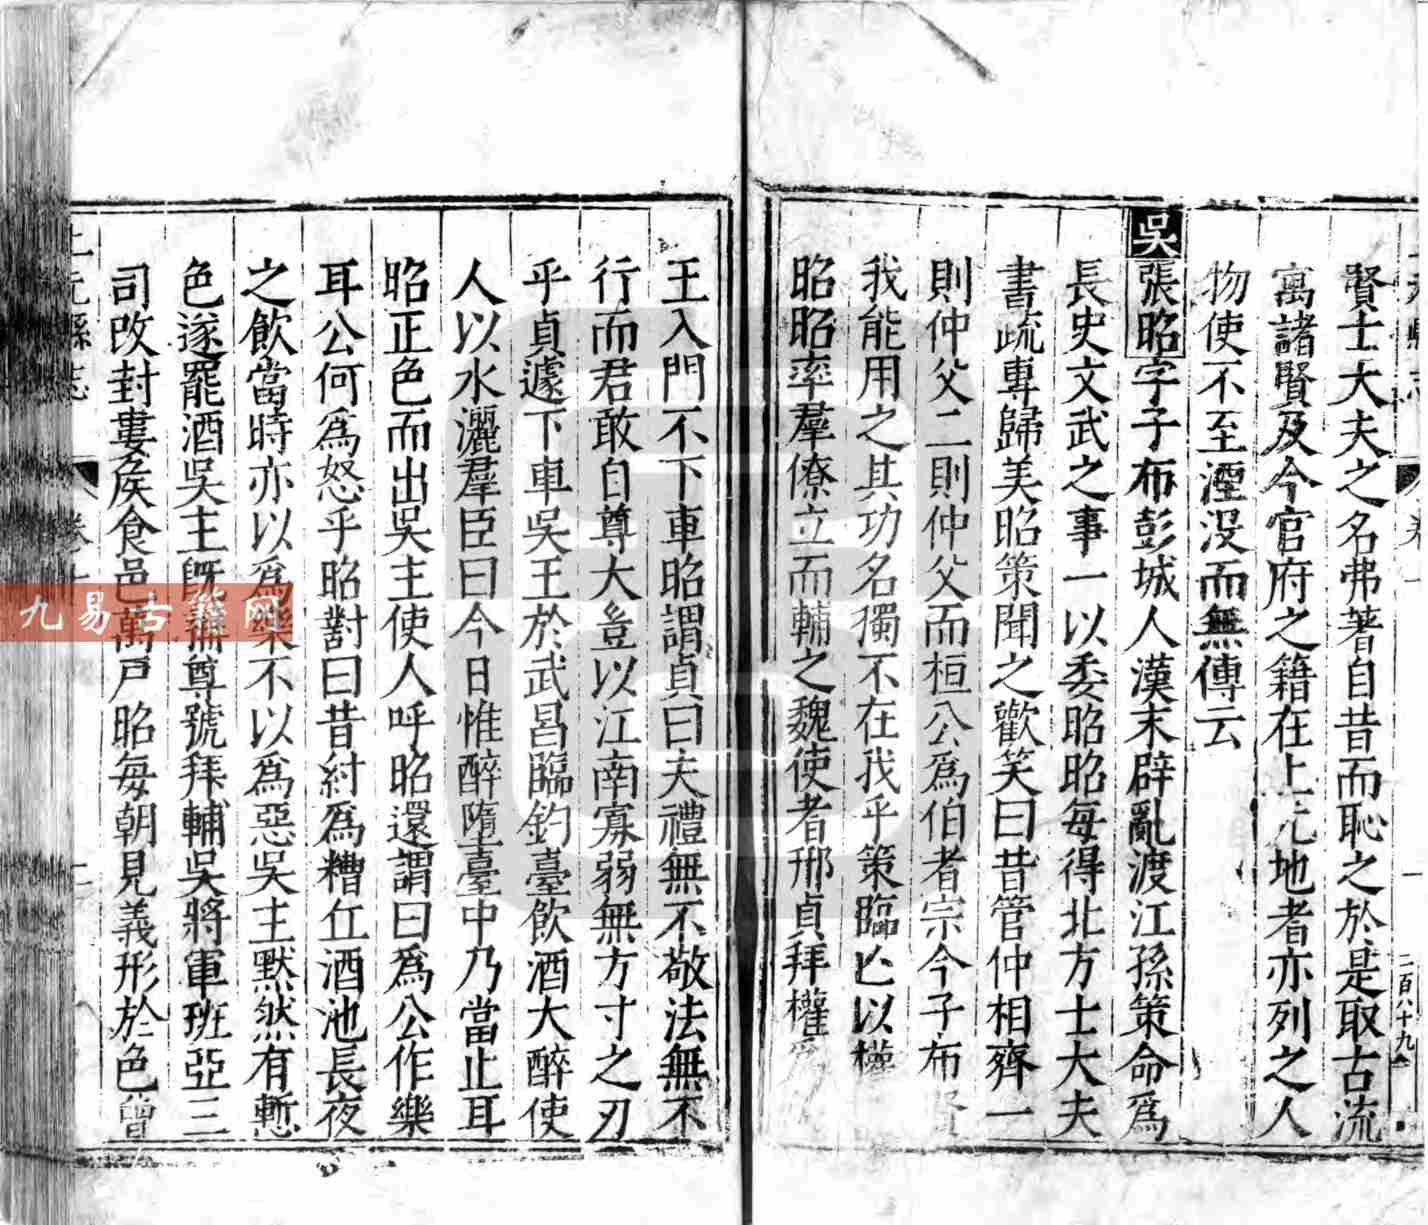 賢士大夫之名弗著自昔而恥之於是取古流
寓諸賢及今官府之籍在上元地者亦列之人
物使不至湮没而無傳云
吳張昭字子布彭城人漢末辟亂渡江孫策命爲
長史文武之事一以委昭昭每得北方士大夫
書疏專歸美昭策聞之歡笑曰昔管仲相齊一
則仲父二則仲父而桓公爲伯者宗今子布賢
我能用之其功名獨不在我乎策臨亡以權
昭昭率羣僚立而輔之魏使者邢貞拜權爲
王入門不下車昭謂貞曰夫禮無不敬法無不
行而君敢自尊大豈以江南寡弱無方寸之刃
乎貞遽下車吳王於武昌臨釣臺飲酒大醉使
人以水灑羣臣曰今日惟醉墮臺中乃當止耳
昭正色而出吳主使人呼昭還謂曰爲公作樂
耳公何爲怒乎昭對曰昔紂爲糟丘酒池長夜
之飲當時亦以爲樂不以爲惡吳主默然有慙
色遂罷酒吳主旣稱尊號拜輔吳將軍班亞三
司改封婁侯食邑萬戸昭每朝見義形於色曾
二百八十九
九易古籍网